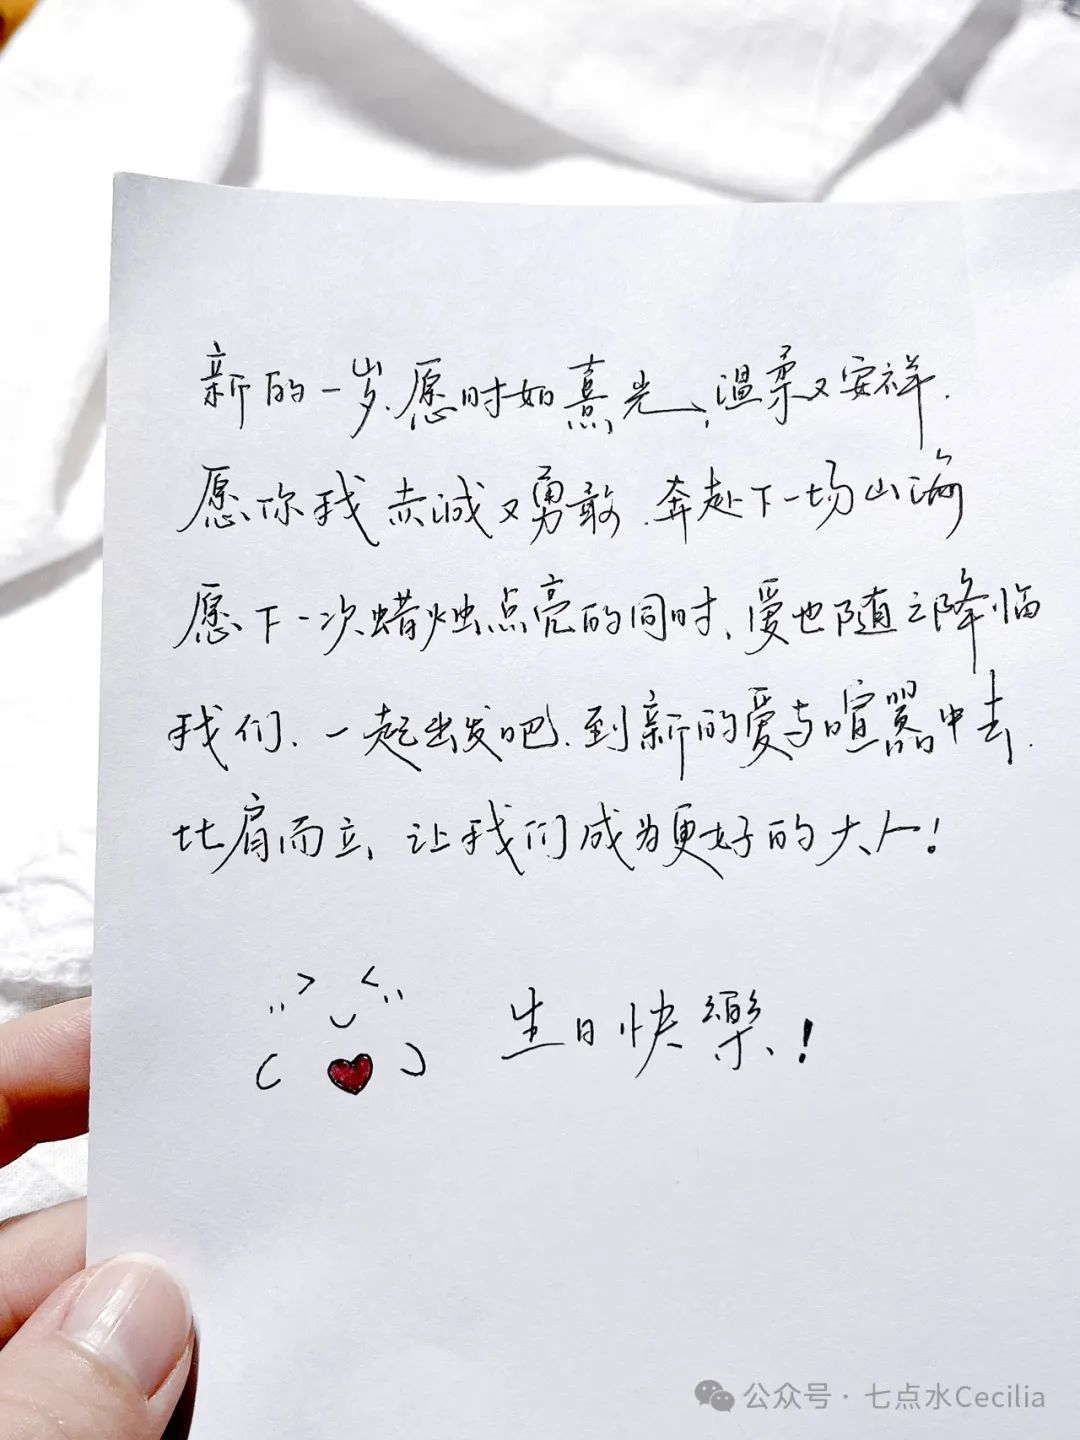 新的一岁,愿时如熹光,温柔又安祥.
愿你我赤诚又勇敢,奔赴下一场山海
愿下一次蜡烛点亮的同时,爱也随之降临
我们,一起出发吧,到新的爱与喧嚣中去.
比肩而立,让我们成为更好的大人!
生日快樂!
公众号·七点水Cecilia